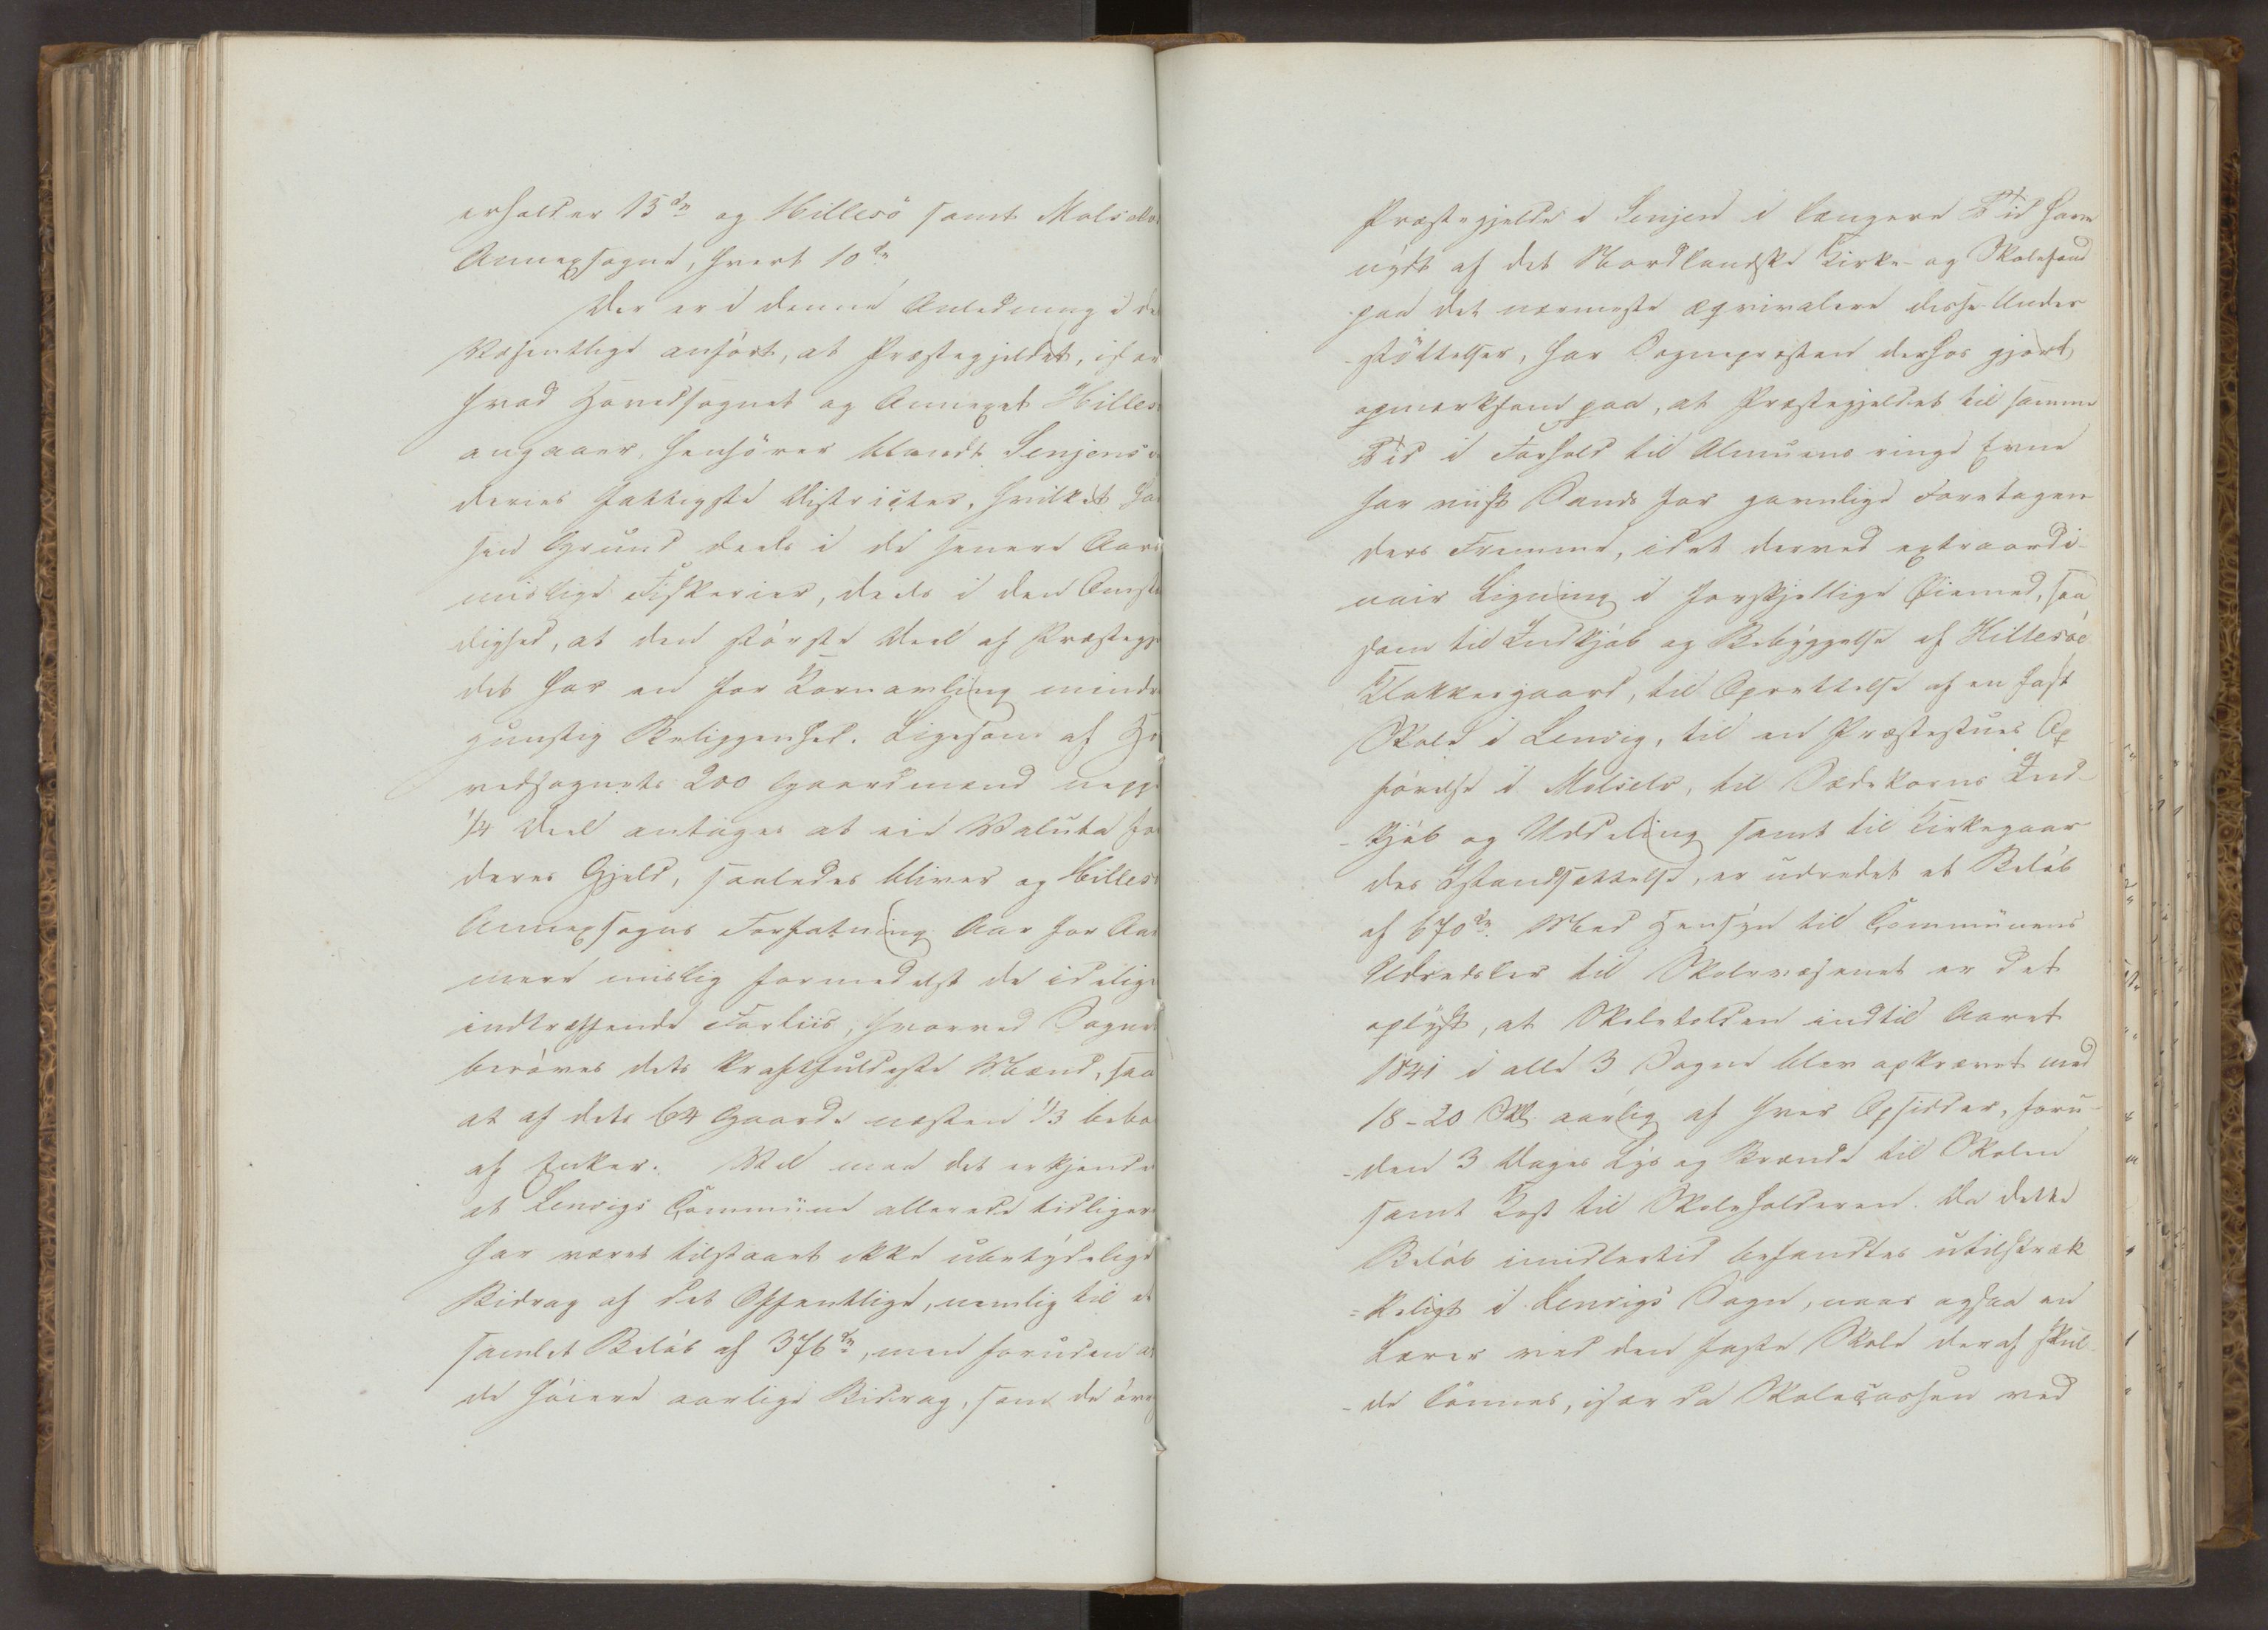 erholder 15 dr og Hillesö samt Malselvs
Annexsogne, hvert 10 dr
Der er i denne Anledning i det
Væsentlige anført, at Præstegjeldet, især
hvad Hovedsognet og Annexet Hillesö
angaaer, henhører blandt Senjens
deries fattigste Districter, hvilket har
sin Grund deels i de senere Aars
mislige Fiskerier, deels i den Omstæn
dighed, at den største Deel af Præstegjel
det har en for Kornavling mindre
gunstig Beliggenhed. Ligesom af Ho
vedsognets 200 Gaardmænd neppe
1/4 Deel antages at eie Valuta for
deres Gjeld, saaledes bliver og Hillesö
Annexsogns Forfatning Aar for Aar
mere mislig formedelst de idelige
indtræffende Forliis, hvorved Sognet
berøves dets kraftfuldeste Mænd, saa
at af dets 64 Gaarde næsten 1/3 beboes
af Enker. Vel maa det erkjendes
at Lenvigs Commüne allerede tidligere
har været tilstaaet ikke ubetydelige
Bidrag af det Offentlige, nemlig til et
samlet Beløb af 376 dr, men foruden at
de høiere aarlige Bidrag, som de øvrige
Præstegjelde i Senjen i længere Tid have
nydt af det Nordlandske Kirke- og Skolefond
paa det nærmeste æqvivalere disse Under
-støttelser, har Sognepresten derhos gjort
opmærksom paa, at Præstegjeldet til samme
Tid i Forhold til Almuens ringe Evne
har viist Sands for gavnlige Foretagen
ders Fremme, idet derved extraordi-
nair Ligning i forskjellige Øiemed, saa
som til Indkjøb og Bebyggelse af Hillesöe
Klokkergaard, til Oprettelse af en fast
Skole i Lenvig, til en Præstestues Op
førelse i Malselv, til Sædekorns Ind-
-kjøb og Uddeling samt til Kirkegaar
des Istandsættelse, er udredet et Beløb
af 670 dr. Med Hensyn til Commünens
Udredsler til Skolevæsenet er det
oplyst, at Skoletolden indtil Aaret
1841 i alle 3 Sogne blev opkrævet med
18-20 Skl aarlig af hver Opsidder, foru-
-den 3 Dages Lys og Brænde til Skolen
samt Kost til Skoleholderen. Da dette
Beløb imidlertid befandtes utilstræk
=keligt i Lenvigs Sogn, naar ogsaa en
Lærer ved den faste Skole deraf skul-
-de lønnes, især da Skolecassen ved